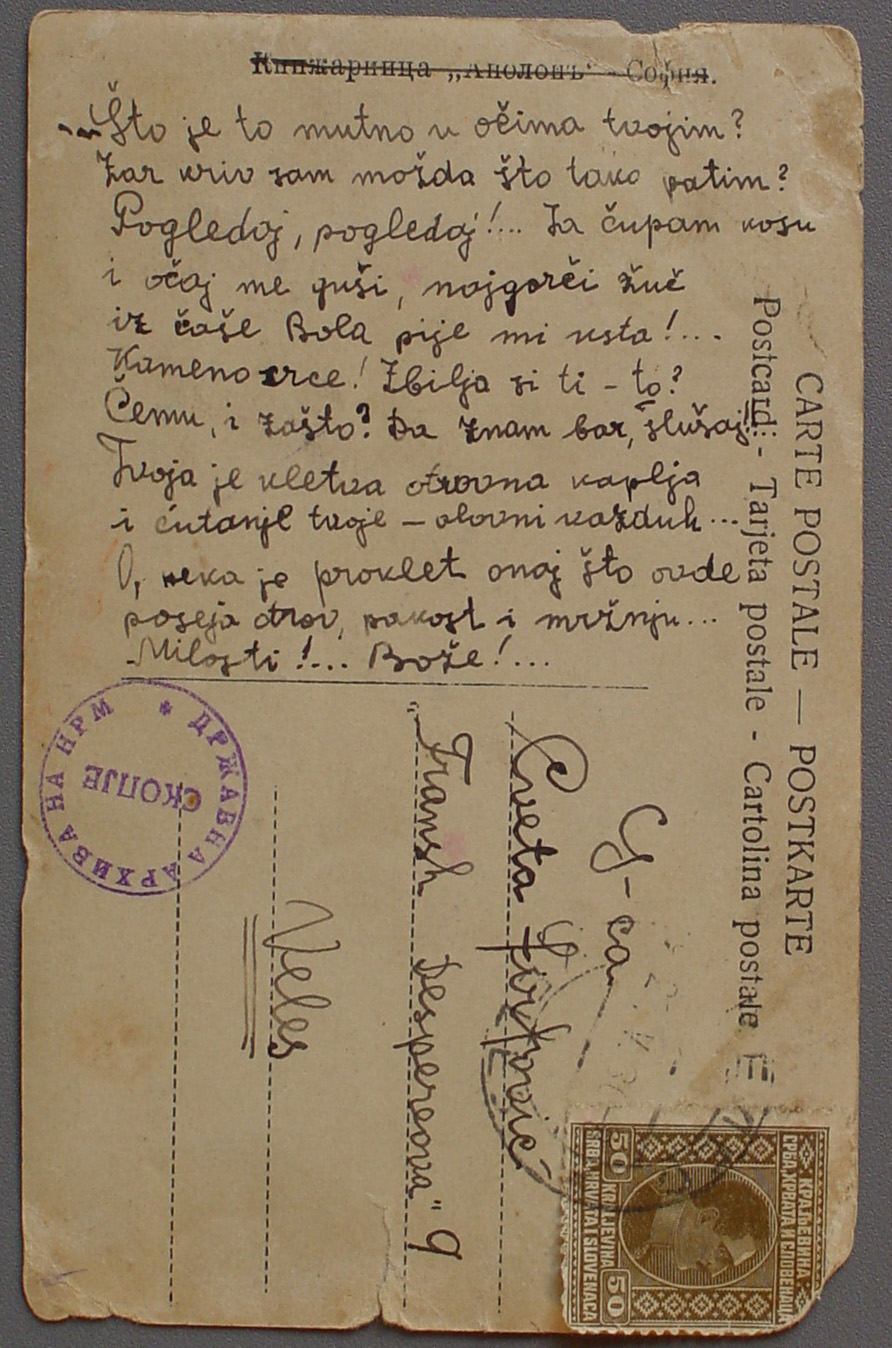 Книжарница „Аполонъ“ - София.
„Što je to mutno u očima tvojim?
Zar kriv sam možda što tako patim?
Pogledaj, pogledaj!... Ja čupam kosu
i očaj me guši, najgorči žuč
iz čaše Bola pije mi usta!...
Kameno srce! Zbilja si ti – to?
Čemu, i zašto? Da znam bar, slušaj:
Tvoja je kletva otrovna kaplja
i ćutanje tvoje – olovni vazduh...
O, neka je proklet onaj što ovde
poseja otrov, pakost i mržnju...
Milosti!... Bože!...
CARTE POSTALE — POSTKARTE
Postcard - Tarjeta postale - Cartolina postale
G-ca
Cveta
"Fransh Despereova" 9
Veles
ДРЖАВНА АРХИВА НА НРМ *
СКОПЈЕ
КРАЉЕВИНА
СРБА, ХРВАТА И СЛОВЕНАЦА
50 KRALJEVINA 50
SRBA, HRVATA I SLOVENACA